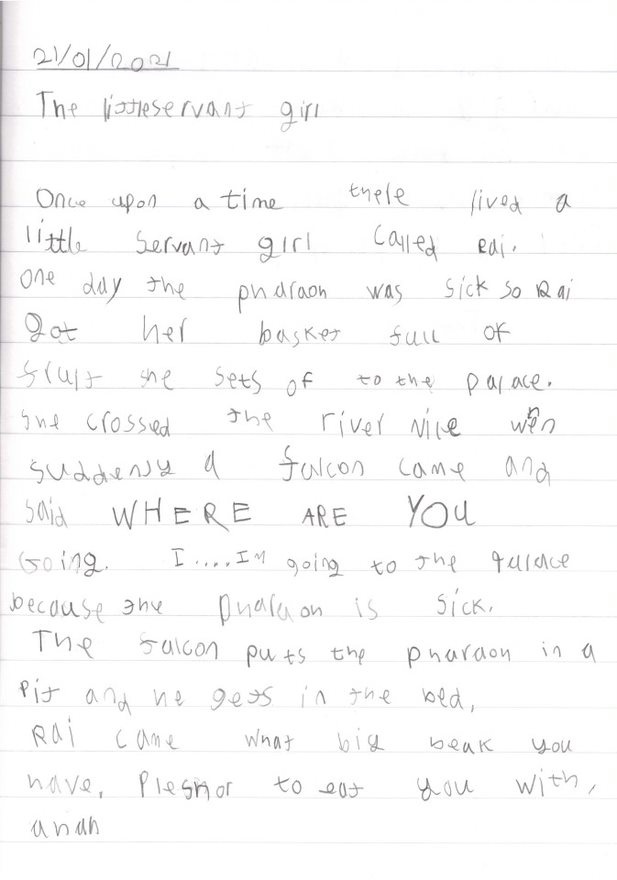 21/01/2021
The littleservant girl
Once upon a time there lived a
little servant girl called Rai.
One day the pharaoh was sick so Rai
got her basket full of
fruit she sets of to the palace.
she crossed the river Nile when
suddenly a falcon came and
said WHERE ARE YOU
Going. I....IM going to the palace
because the pharaoh is sick.
The falcon puts the pharaoh in a
pit and he gets in the bed,
Rai came what big beak you
have, to eat you with,